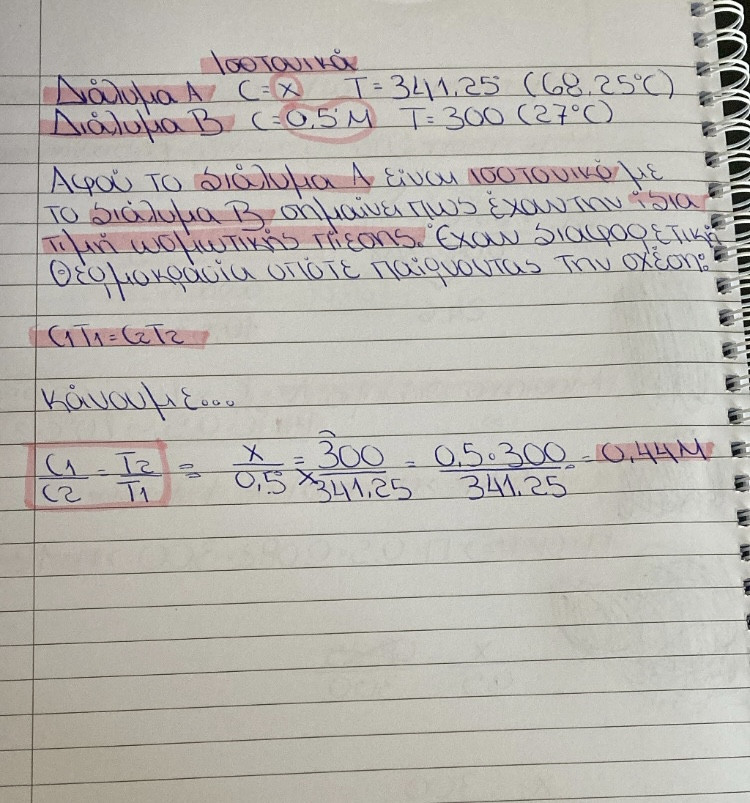 Ισοτονικά
Διάλυμα Α C = x T = 341,25 (68,25°C)
Διάλυμα Β C = 0,5 M T = 300 (27°C)
Αφού το διάλυμα Α είναι ισοτονικό με
το διάλυμα Β σημαίνει πως έχουν την ίδια
τιμή ωσμωτικής πίεσης. Έχουν διαφορετική
θερμοκρασία οπότε παίρνοντας την σχέση:
C1T1=C2T2
κάνουμε...
C1/C2 = T2/T1 = x/0,5 = 300/341,25 = 0,5·300/341,25 = 0,44M